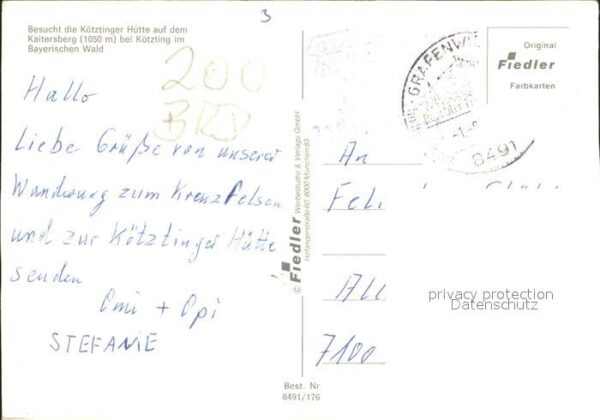 3
Besucht die Kötztinger Hütte auf dem
Kaitersberg (1050 m) bei Kötzting im
Bayerischen Wald
200
BRD
Hallo
Liebe Grüße von unserer
Wanderung zum Kreuzfelsen
und zur Kötztinger Hütte
senden
Omi + Opi
STEFANIE
© Fiedler Werbestudio & Verlags GmbH
Hofangerstraße 60, 8000 München 83
Best. Nr
8491/176
GRAFENW
8491
Original
Fiedler
Farbkarten
An
Feli
All
7100
privacy protection
Datenschutz